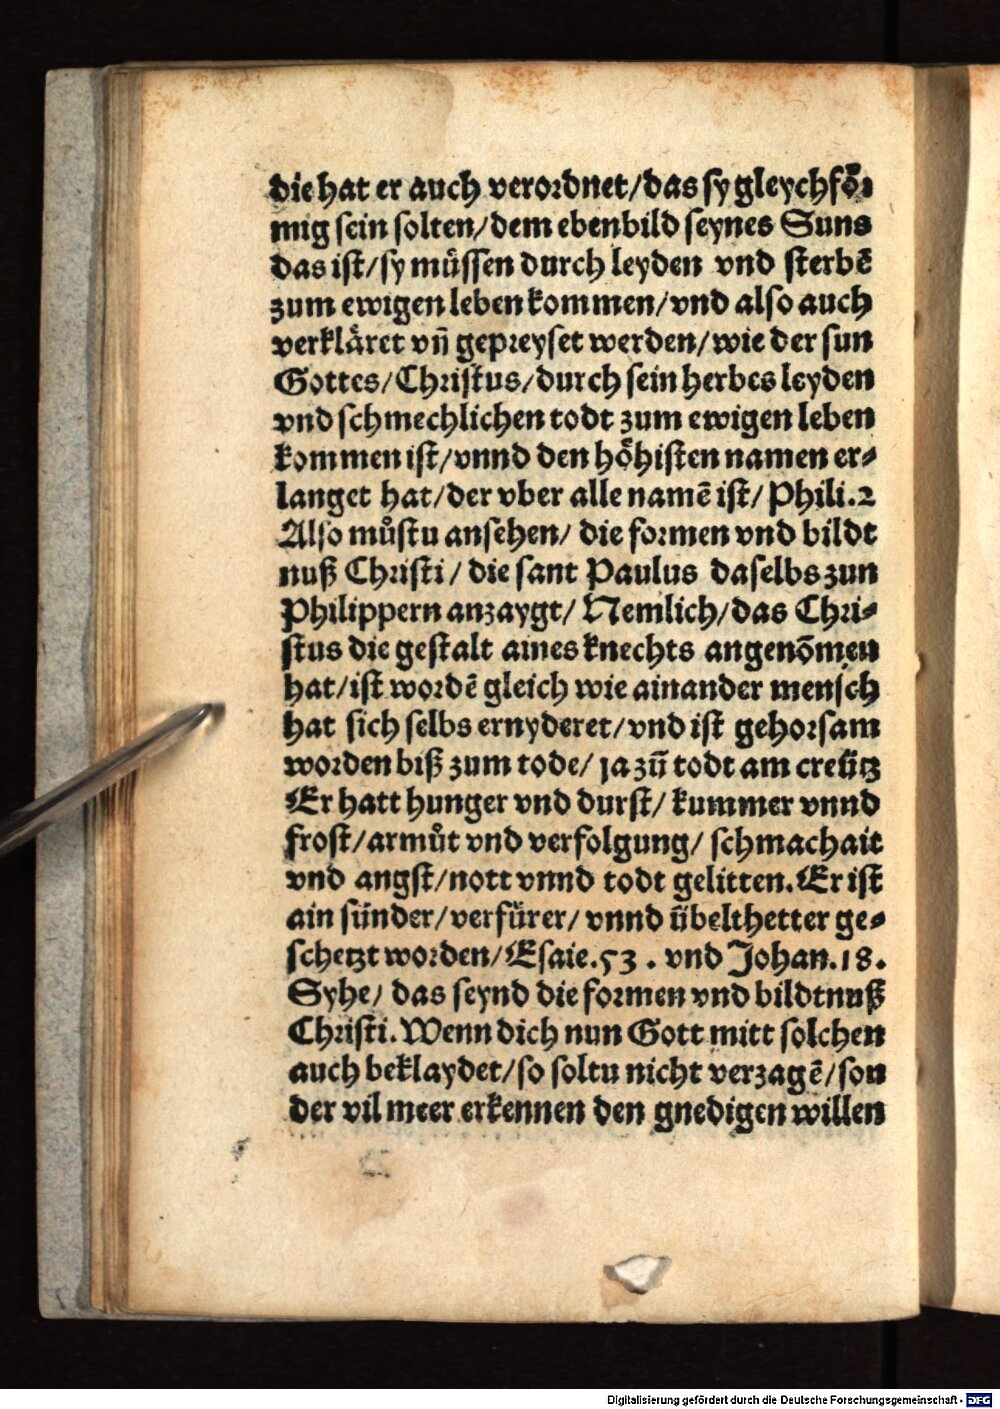 die hat er auch verordnet/das sy gleychfoͤr
mig sein solten/dem ebenbild seynes Suns
das ist/sy muͤssen durch leyden vnd sterbē
zum ewigen leben kommen/vnd also auch
verklaͤret vn̄ gepreyset werden/wie der sun
Gottes/Christus/durch sein herbes leyden
vnd schmechlichen todt zum ewigen leben
kommen ist/vnnd den hoͤhisten namen er⸗
langet hat/der vber alle namē ist/Phili.2
Also muͦstu ansehen/ die formen vnd bildt
nuß Christi/ die sant Paulus daselbs zun
Philippern anzaygt/ Nemlich/das Chri⸗
stus die gestalt aines knechts angenōmen
hat/ist wordē gleich wie ainander mensch
hat sich selbs ernyderet/vnd ist gehorsam
worden biß zum tode/ ja zū todt am creütz
Er hatt hunger vnd durst/ kummer vnnd
frost/armuͦt vnd verfolgung/ schmachait
vnd angst/nott vnnd todt gelitten.Er ist
ain sünder/verfürer/ vnnd übelthetter ge⸗
schetzt worden/Esaie.53. vnd Johan.18.
Syhe/ das seynd die formen vnd bildtnuß
Christi.Wenn dich nun Gott mitt solchen
auch beklaydet/so soltu nicht verzagē/son
der vil meer erkennen den gnedigen willen
Digitalisierung gefördert durch die Deutsche Forschungsgemeinschaft - DFG